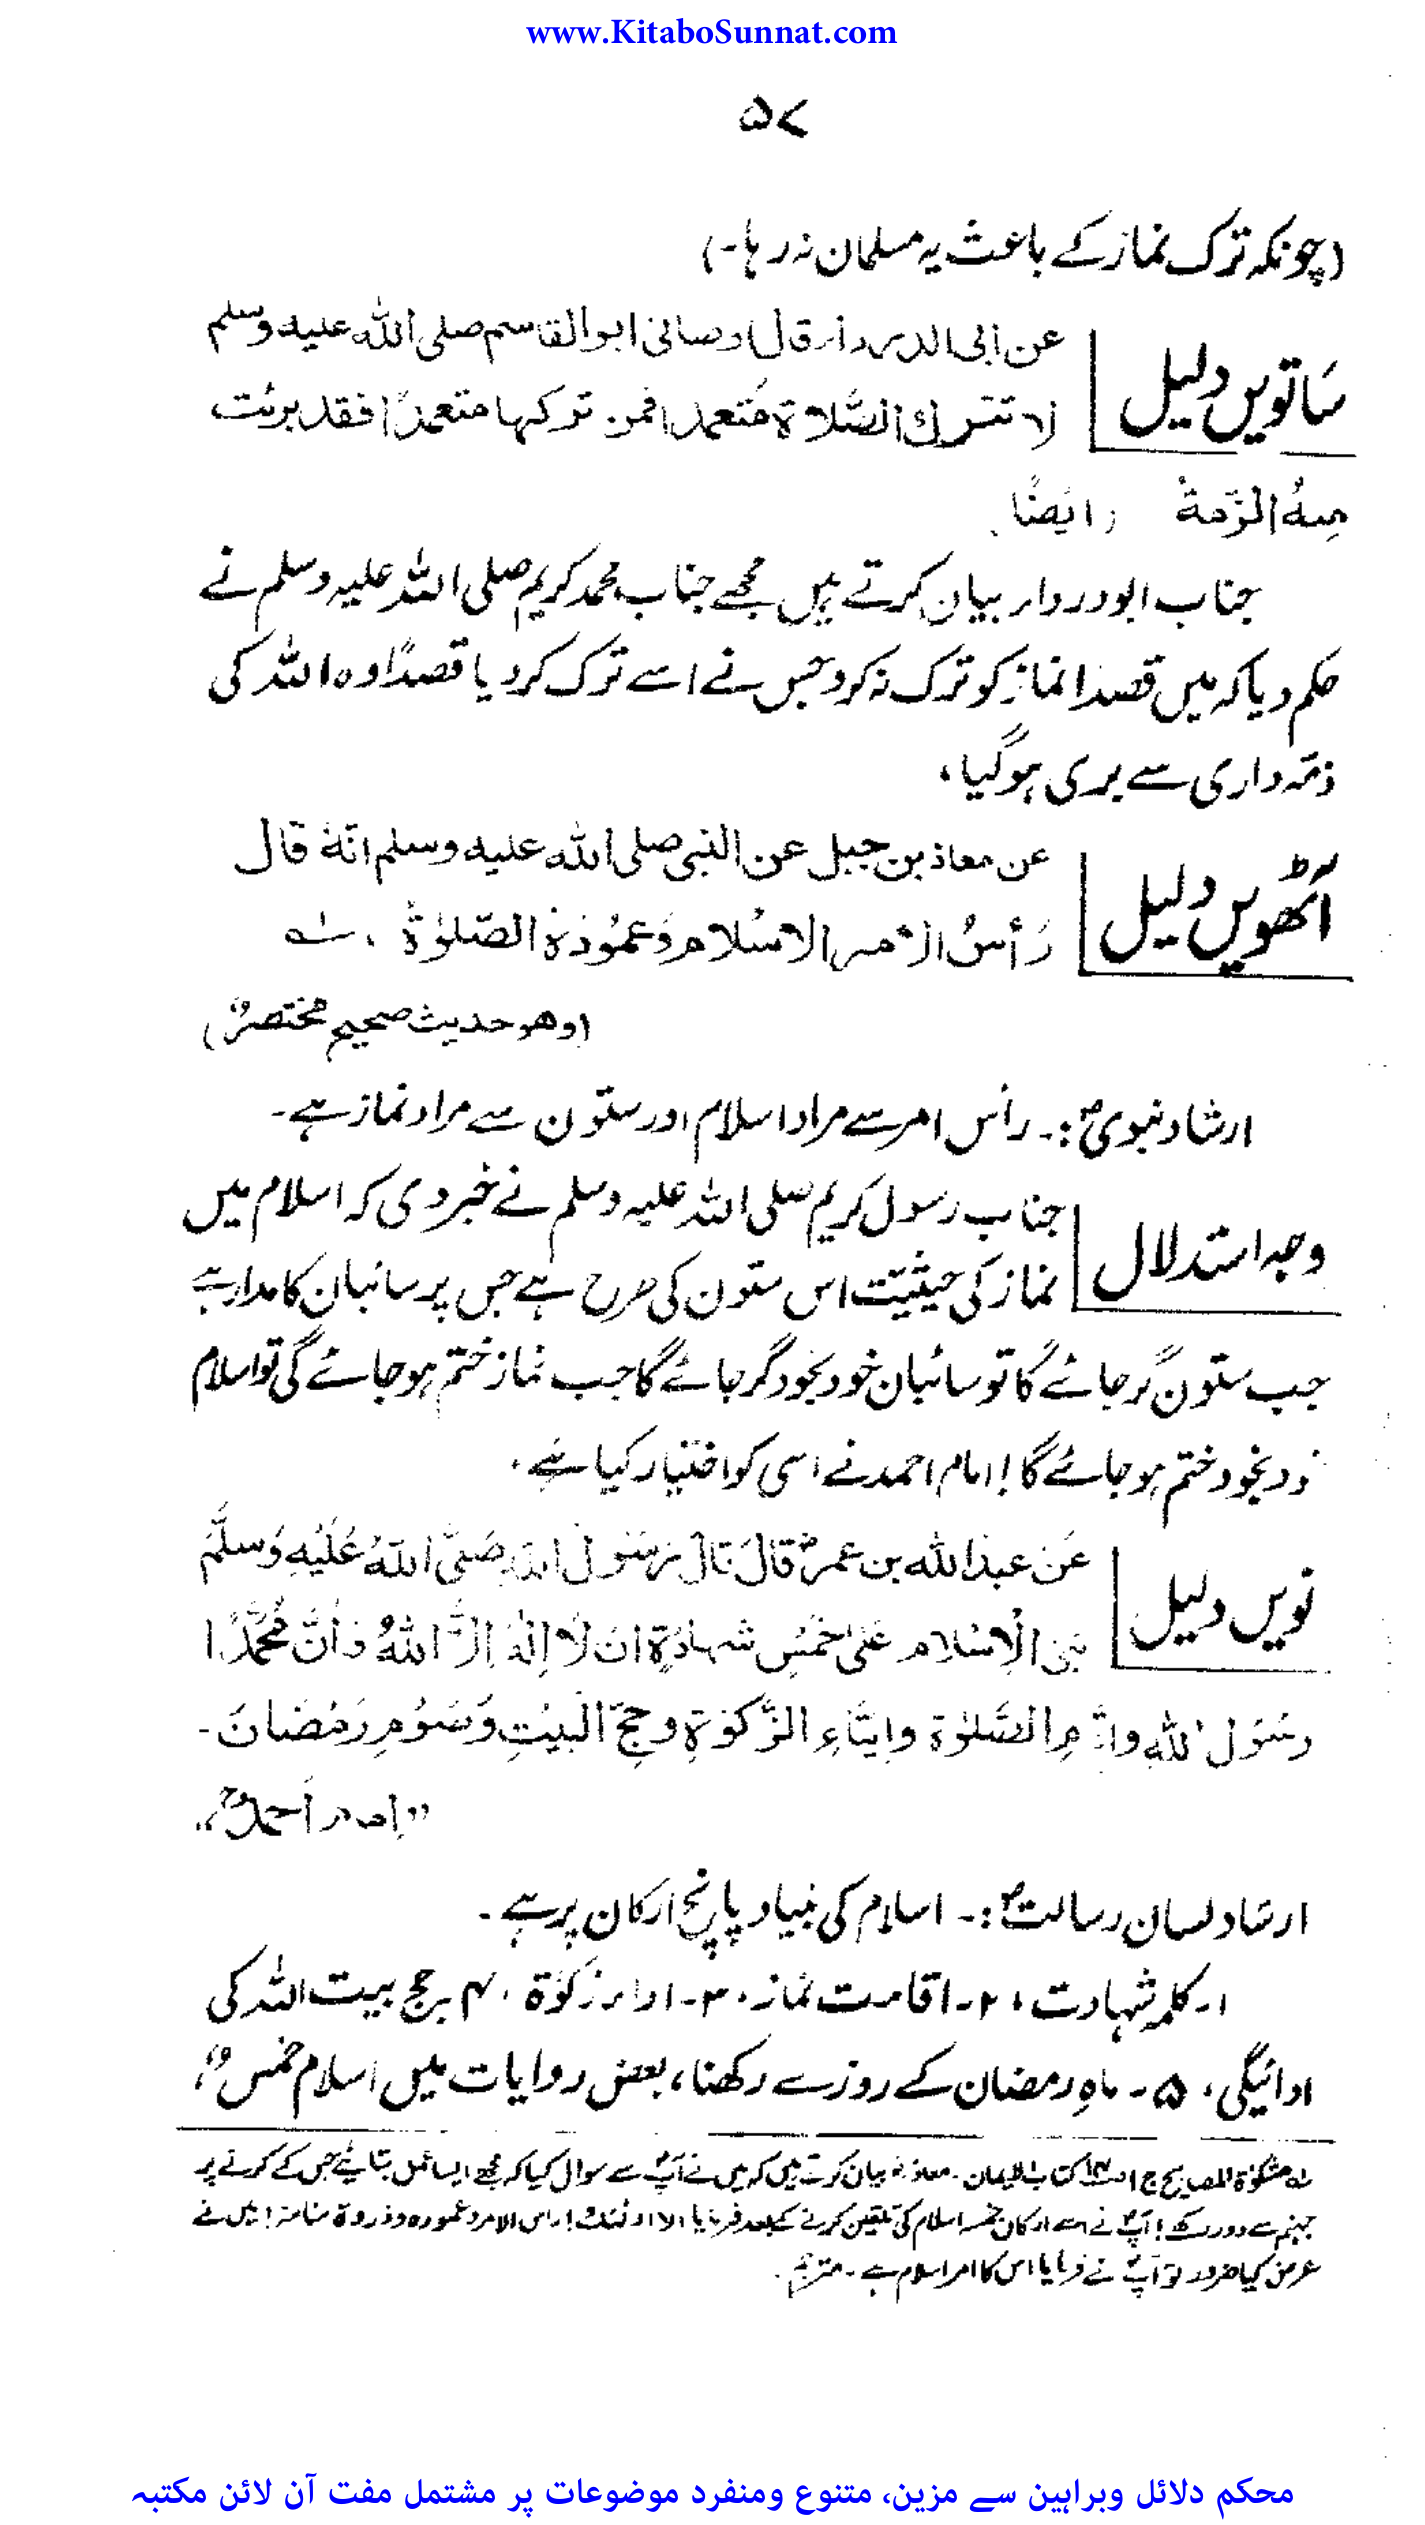 www.KitaboSunnat.com
۵۷
(چونکہ ترک نماز کے باعث یہ مسلمان نہ رہا۔)
ساتویں دلیل
عن ابی الدرداء قال اوصانی ابوالقاسم صلی اللہ علیہ وسلم
لا تترك الصّلاة متعمدا فمن تركها متعمدًا فقد برئت
منهُ الذّمةُ (ایضًا)
جناب ابودرداء بیان کرتے ہیں مجھے جناب محمد کریم صلی اللہ علیہ وسلم نے
حکم دیا کہ میں قصدا نماز کو ترک نہ کرو جس نے اسے ترک کردیا قصدًا وہ اللہ کی
ذمّہ داری سے بری ہوگیا،
آٹھویں دلیل
عن معاذ بن جبل عن النبی صلی اللہ علیہ وسلم انّهٗ قال
رَأسُ الامر الاسْلام وَعمُودُهٗ الصّلوٰةُ ، لہ
(وهو حدیث صحیح مختصرٌ)
ارشاد نبویؐ :۔ رأس امر سے مراد اسلام اور ستون سے مراد نماز ہے۔
وجہ استدلال
جناب رسول کریم صلی اللہ علیہ وسلم نے خبر دی کہ اسلام میں
نماز کی حیثیّت اس ستون کی طرح ہے جس پر سائبان کا مدار ہے
جب ستون گر جائے گا تو سائبان خود بخود گر جائے گا جب نماز ختم ہوجائے گی تو اسلام
خود بخود ختم ہو جائے گا! امام احمد نے اسی کو اختیار کیا ہے،
نویں دلیل
عَن عبدالله بن عمرؓ قالَ قالَ رَسُولُ اللهِ صَلَّی اللهُ عَلَیْهِ وَسلَّمَ
بُنی الْاِسْلام عَلیٰ خَمْسٍ شهادَةِ ان لَا اِلٰهَ اِلَّا اللهُ وَأنَّ مُحمَّدًا
رسُوْل اللهِ واقامِ الصَّلوٰة وایتَاءِ الزَّکوٰةِ وحجّ البیْتِ وَصَوْمِ رَمْضَانَ۔
"امام أحمدؒ"
ارشاد لسان رسالتؐ :۔ اسلام کی بنیاد پانچ ارکان پر ہے۔
۱۔ کلمہ شہادت، ۲۔ اقامت نماز، ۳۔ اداء زکوٰۃ ، ۴ ۔ حج بیت اللہ کی
ادائیگی، ۵۔ ماہِ رمضان کے روزے رکھنا، بعض روایات میں اسلام خمسٌ،
لہ مشکوٰۃ المصابیح ج ۱ ص۱۴ کتاب الایمان ۔ معاذؓ بیان کرتے ہیں کہ میں نے آپؐ سے سوال کیا کہ مجھے ایسا عمل بتائیے جس کے کرنے پر
جہنم سے دور رہے! آپؐ نے اسے ارکان خمسہ اسلام کی تلقین کرنے کے بعد فرمایا الا ادلک! راس الامر وعموده وذروة سنامه! میں نے
عرض کیا ضرور تو آپؐ نے فرمایا اس کا امر اسلام ہے۔ مترجم،
محکم دلائل وبراہین سے مزین، متنوع ومنفرد موضوعات پر مشتمل مفت آن لائن مکتبہ